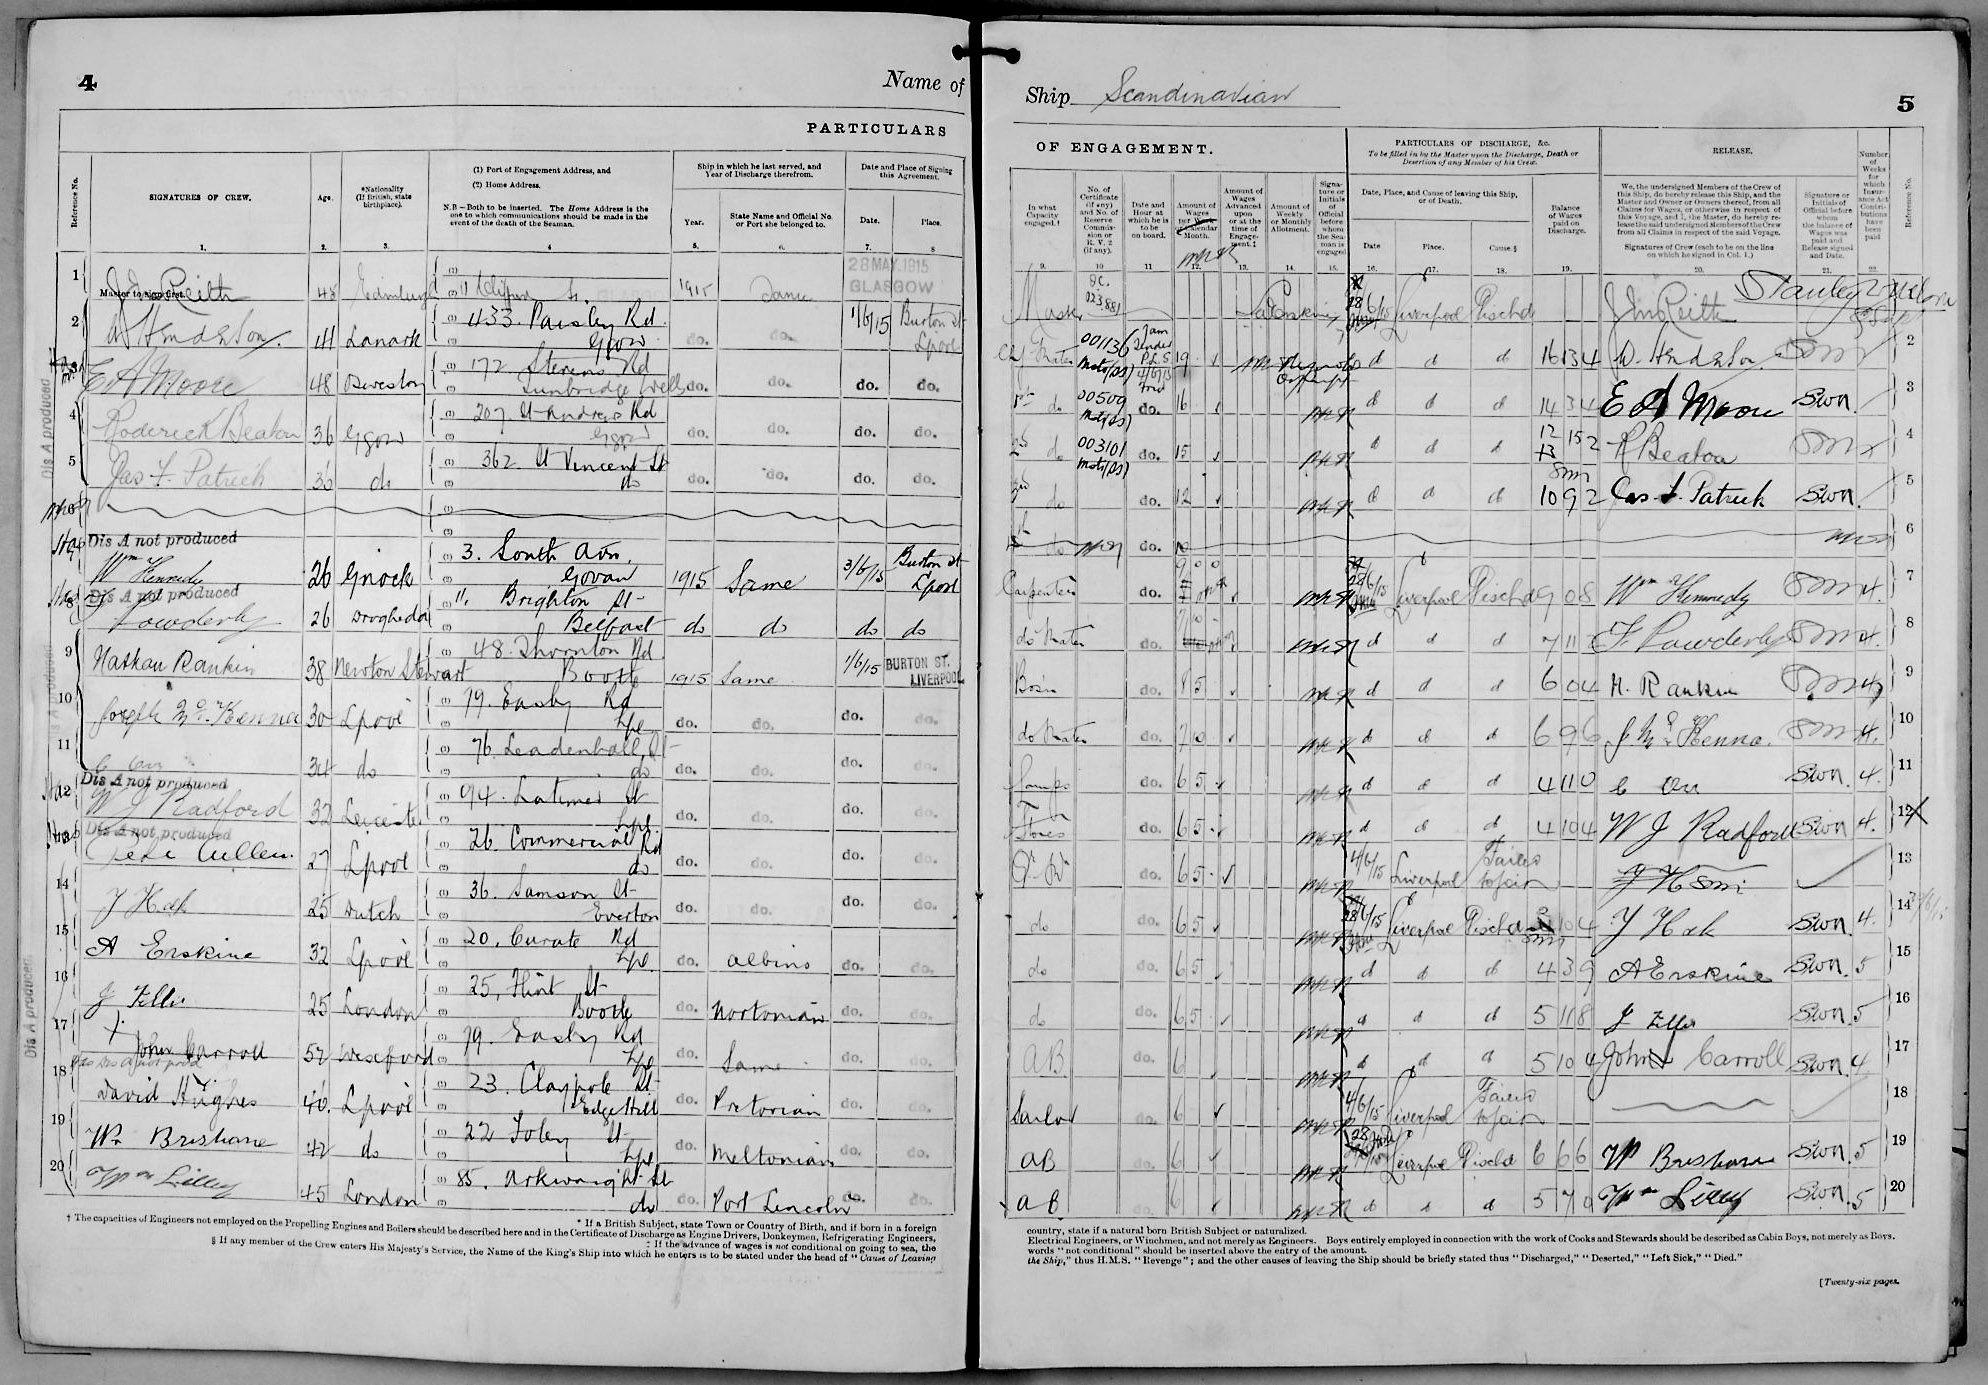 4
Name of
PARTICULARS
Reference No.
SIGNATURES OF CREW.
Age.
*Nationality
(If British, state
birthplace).
(1) Port of Engagement Address, and
(2) Home Address.
N.B—Both to be inserted. The Home Address is the
one to which communications should be made in the
event of the death of the Seaman.
Ship in which he last served, and
Year of Discharge therefrom.
Year.
State Name and Official No.
or Port she belonged to.
Date and Place of Signing
this Agreement.
Date.
Place.
1. 2. 3. 4 5. 6. 7. 8
28 MAY. 1915
GLASGOW
1 Master to sign first. Reith 48 Edinburgh 1915 Same
2 W Henderson 41 Lanark 433. Paisley Rd. Ggow do. do. 1/6/15 Burton St Lpool
3 E A Moore 48 172 Stevens Rd Tunbridge Wells do. do. do. do.
4 Roderick Beaton 36 Ggow 207 St Andrews Rd Ggow do. do. do. do.
5 Jas. F. Patrick 36 do 362. St Vincent St do do. do. do. do.
6
7 Dis A not produced
Wm Kennedy 26 Gnock 3. South Avn. Govan 1915 Same 3/6/15 Burton St Lpool
8 Dis A not produced
F Powderly 26 Drogheda 11, Brighton St Belfast do do do do
9 Nathan Rankin 38 Newton Stewart 48. Thornton Rd Bootle 1915 Same 1/6/15 BURTON ST. LIVERPOOL
10 Joseph McKenna 30 Lpool 79. Easby Rd Lpl do. do. do. do.
11 C Orr 34 do 76. Leadenhall St do do. do. do. do.
12 Dis A not produced
W J Radford 32 Leicester 94. Latimer St Lpl. do. do. do. do.
13 Dis A not produced
Cullen 27 Lpool 26. Commercial Rd do do. do. do. do.
14 25 Dutch 36. Samson St Everton do. do. do. do.
15 A Erskine 32 Lpool 20. Curate Rd Lpl. do. do. do.
16 25 London 25, Flint St Bootle do. Nortonian do. do.
17 John Carroll 52 Wexford 79. Easby Rd Lpl do. Same do. do.
18 David Hughes 40. Lpool 23. Claypole St Edge Hill do. Pretorian do. do.
19 Wm Brisbane 42 do 22 Foley St Lpl do. Meltonian do. do.
20 Wm Lilley 45 London 85. Arkwright St do do. Port Lincoln do. do.
Dis A produced
Dis A produced
Dis A produced.
† The capacities of Engineers not employed on the Propelling Engines and Boilers should be described here and in the Certificate of Discharge as Engine Drivers, Donkeymen, Refrigerating Engineers,
* If a British Subject, state Town or Country of Birth, and if born in a foreign
‡ If the advance of wages is not conditional on going to sea, the
§ If any member of the Crew enters His Majesty's Service, the Name of the King's Ship into which he enters is to be stated under the head of "Cause of Leaving
Ship Scandinavian
5
OF ENGAGEMENT.
PARTICULARS OF DISCHARGE, &c.
To be filled in by the Master upon the Discharge, Death or
Desertion of any Member of his Crew.
RELEASE.
In what
Capacity
engaged.†
No. of
Certificate
(if any)
and No. of
Reserve
Commis-
sion or
R. V. 2
(if any).
Date and
Hour at
which he is
to be
on board.
Amount of
Wages
per Week
or Calendar
Month.
Amount of
Wages
Advanced
upon
or at the
time of
Engage-
ment.‡
Amount of
Weekly
or Monthly
Allotment.
Signa-
ture or
Initials
of
Official
before
whom
the Sea-
man is
engaged
Date, Place, and Cause of leaving this Ship,
or of Death.
Date
Place.
Cause.§
Balance
of Wages
paid on
Discharge.
We, the undersigned Members of the Crew of
this Ship, do hereby release this Ship, and the
Master and Owner or Owners thereof, from all
Claims for Wages, or otherwise in respect of
this Voyage, and I, the Master, do hereby re-
lease the said undersigned Members of the Crew
from all Claims in respect of the said Voyage.
Signatures of Crew (each to be on the line
on which he signed in Col. 1.)
Signature or
Initials of
Official before
whom
the balance of
Wages was
paid and
Release signed
and Date.
Number
of
Weeks
for
which
Insur-
ance Act
Contri-
butions
have
been
paid
Reference No.
9. 10 11 12. 13. 14. 15. 16. 17. 18. 19. 20. 21. 22.
Master 023,881 28/6/15 Liverpool Dischd Reith
Mate 001136 19 d d d 16 13 4 W. Henderson 2
1st do 00509 do. 16 d d d 14 3 4 E A Moore SWN. 3
2nd do 003101 do. 15 d d d R Beaton 4
3rd do do. 12 d d d 10 9 2 Jas. F. Patrick SWN. 5
do do. 6
Carpenter 28/6/15 Liverpool Dischd 9 0 8 Wm Kennedy 4. 7
do Mate d d d F. Powderly 4. 8
Bosn do. 8 5 d d d 6 0 4 N. Rankin 4 9
do Mate do. 7 0 d d d 6 9 6 J McKenna. 4. 10
Lamps do. 6 5 d d d 4 11 0 C Orr SWN 4. 11
Stores do. 6 5 d d d 4 10 4 W J Radford SWN 4. 12
do. 6 5 4/6/15 Liverpool Failed to join 13
do do. 6 5 28/6/15 Liverpool Dischd SWN. 4. 14
do do. 6 5 d d d 4 3 9 A Erskine SWN. 5 15
do do. 6 5 d d d 5 11 8 SWN. 5 16
AB do. 6 d d d 5 10 4 John Carroll SWN. 4 17
Sailor do. 6 4/6/15 Liverpool Failed to join 18
AB do. 6 28 Liverpool Dischd 6 6 6 W Brisbane SWN. 5 19
AB do. 6 d d d 5 7 0 Wm Lilley SWN. 5 20
country, state if a natural born British Subject or naturalized.
Electrical Engineers, or Winchmen, and not merely as Engineers. Boys entirely employed in connection with the work of Cooks and Stewards should be described as Cabin Boys, not merely as Boys.
words "not conditional" should be inserted above the entry of the amount.
the Ship," thus H.M.S. "Revenge"; and the other causes of leaving the Ship should be briefly stated thus "Discharged," "Deserted," "Left Sick," "Died."
[Twenty-six pages.